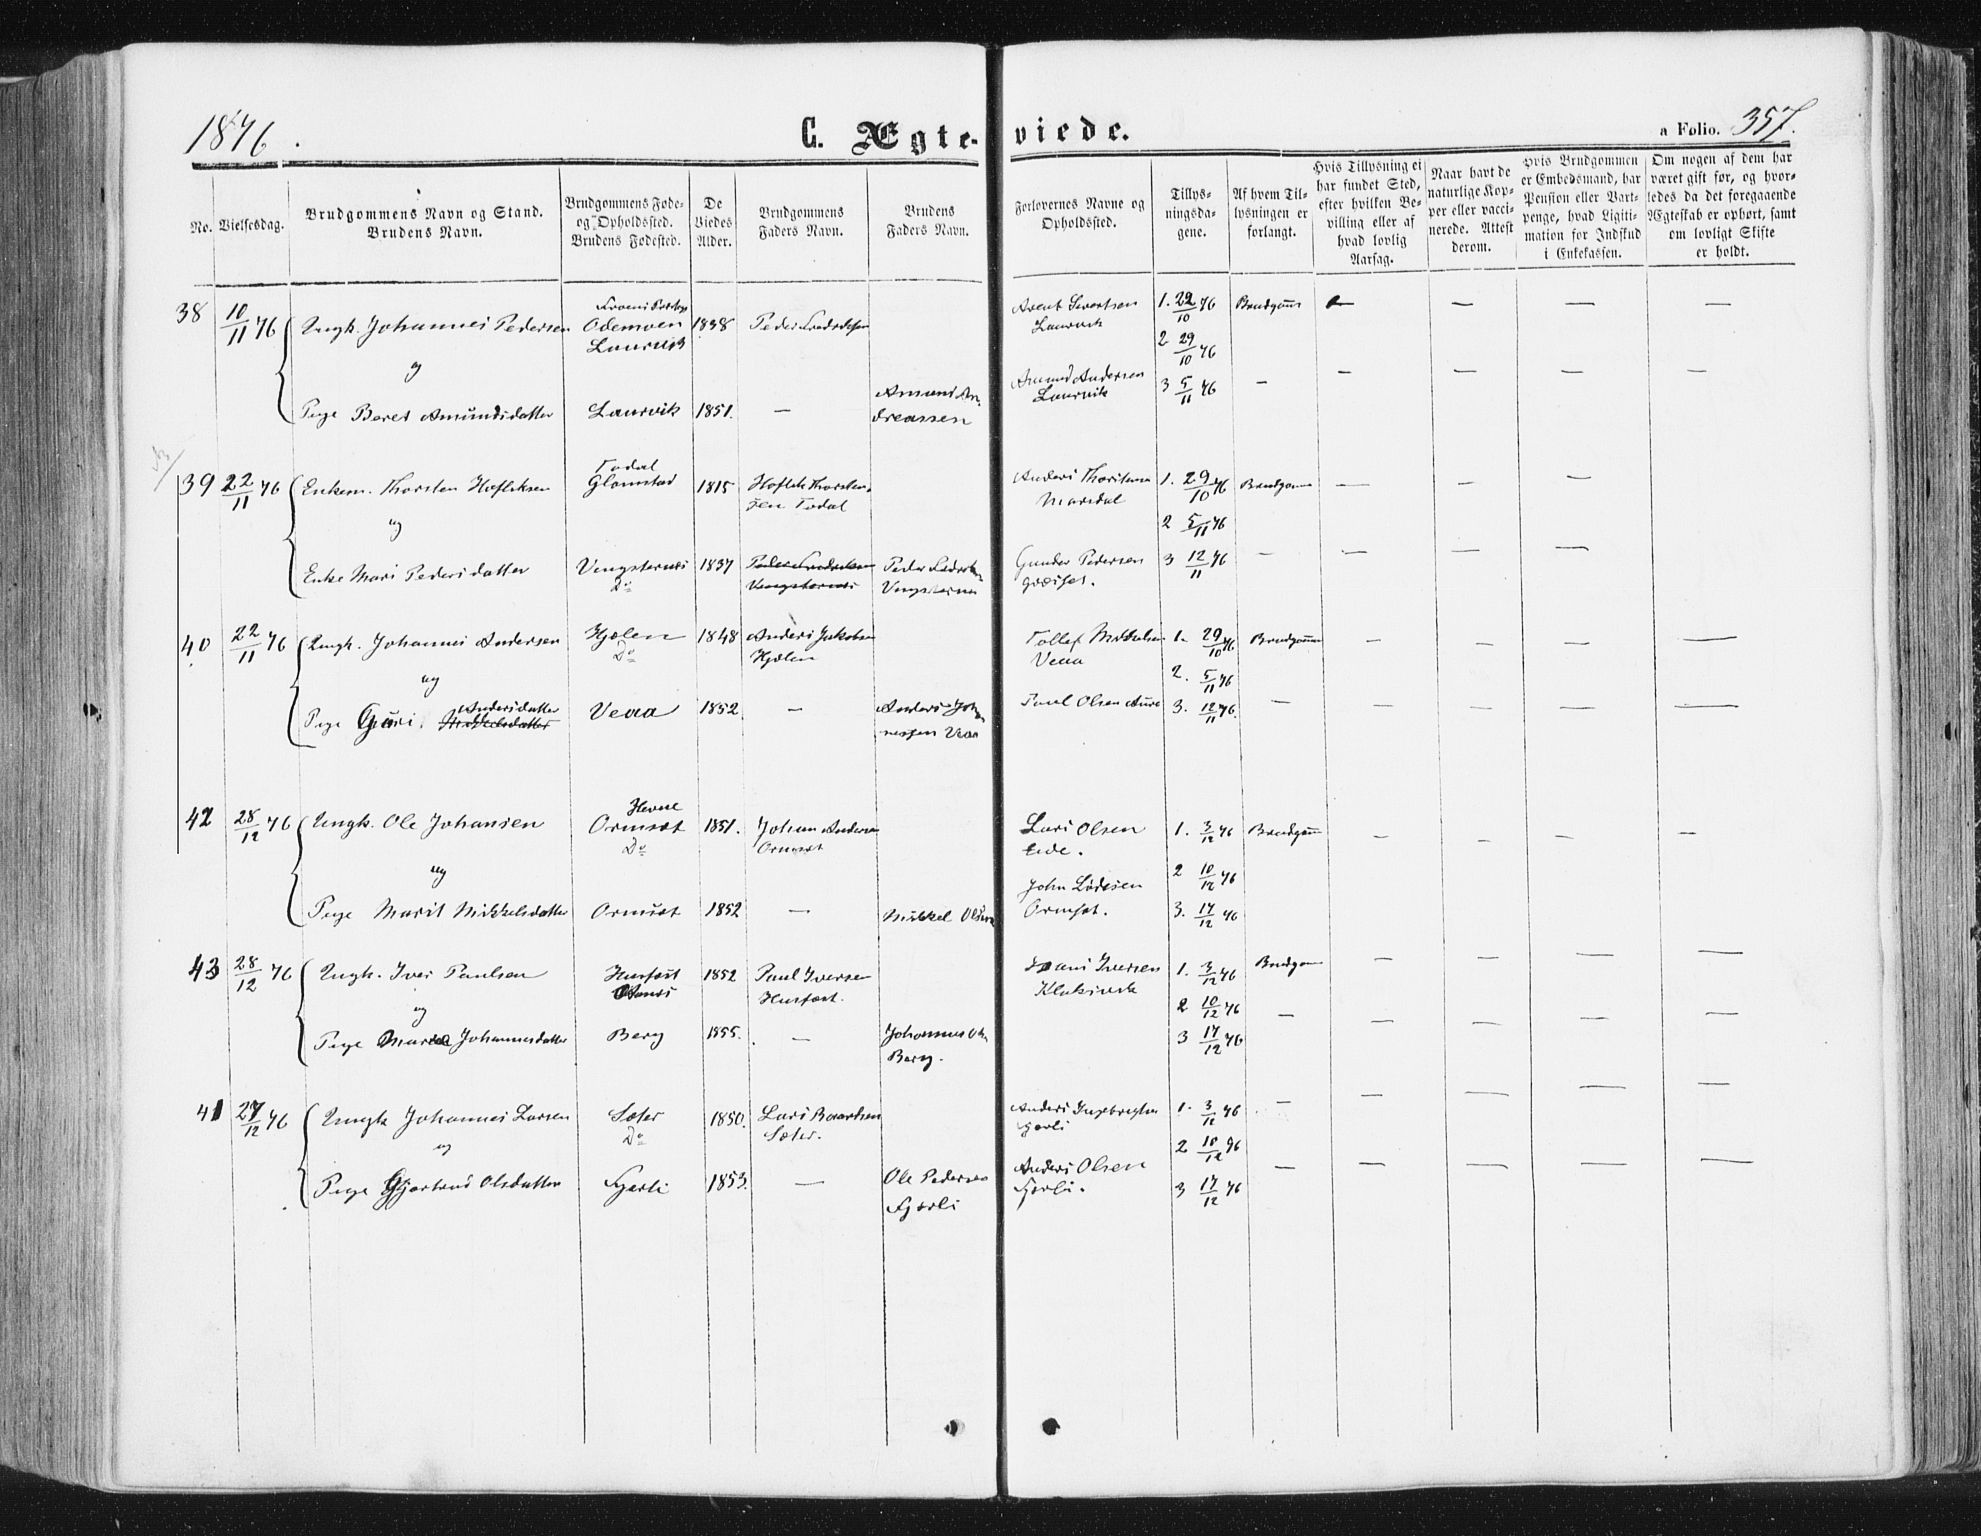 1876.
C. Ægte-viede.
a Folio. 357.
No.
Vielsesdag.
Brudgommens Navn og Stand.
Brudens Navn.
Brudgommens Føde-
og Opholdssted.
Brudens Fødested.
De
Viedes
Alder.
Brudgommens
Faders Navn.
Brudens
Faders Navn.
Forlovernes Navne og
Opholdssted.
Tillys-
ningsda-
gene.
Af hvem Til-
lysningen er
forlangt.
Hvis Tillysning ei
har fundet Sted,
efter hvilken Be-
villing eller af
hvad lovlig
Aarsag.
Naar havt de
naturlige Kop-
per eller vacci-
nerede. Attest
derom.
Hvis Brudgommen
er Embedsmand, har
Pension eller Vart-
penge, hvad Ligiti-
mation for Indskud
i Enkekassen.
Om nogen af dem har
været gift før, og hvor-
ledes da det foregaaende
Ægteskab er ophørt, samt
om lovligt Skifte
er holdt.
38 10/11 76 Ungk. Johannes Pedersen
Odemoen
Laurvik
1838 Peder
Arent Sivertsen
Laurvik
1. 22/10 76 Brudgom — — — —
2 29/10 76
og
Pige Beret Amundsdatter Laurvik 1851. — Amund An-
dreassen
Amund Andersen
Laurvik
3 5/11 76 — — — — —
39 22/11 76 Enkem. Thorsten Hofleksen
Todal
Glomstad
1815 Hoflek Thorsten-
sen Todal
Anders Thorstensen
Morsdal
1. 29/10 76 Brudgom — — —
2 5/11 76
og
Enke Mari Pedersdatter Vengsternes
Do
1837
Vengsternes
Peder
Vengsternes
Gunder Pedersen
3 12/11 76 — — — —
40 22/11 76 Ungk. Johannes Andersen Hjelen
Do
1848 Anders Jakobsen
Hjelen
Tollef Mikkelsen
Veaa
1. 29/10 76 Brudgom — — — —
2. 5/11 76
og
Pige Guri Andersdatter
Mikkelsdatter
Veaa 1852. — Anders Johan-
nessen Veaa
Paul Olsen Aure
3. 12/11 76. — — — — —
42 28/12 76 Ungk. Ole Johansen
Hevne
Ormset
Do
1851. Johan Andersen
Ormset
Lars Olsen
Eide.
1. 3/12 76 Brudgom — — — —
2 10/12 76
og
Pige Marit Mikkelsdatter Ormset 1852 — Mikkel Olsen
John
Ormset.
3. 17/12 76
43 28/12 76 Ungk. Iver Paulsen Husfast
1852 Paul Iversen
Husfast.
Hans Iversen
1. 3/12 76 Brudgom — — — —
2 10/12 76
og
Pige Johannesdatter Berg 1855. — Johannes
Berg.
3 17/12 76 — — — — —
41 27/12 76 Ungk Johannes Larsen Sæter
Do
1850. Lars Baardsen
Sæter.
Anders Ingebregtsen
Fjærli
1. 3/12 76 — — — — —
2 10/12 76
og
Pige Gjertrud Olsdatter Fjærli 1853. — Ole Pedersen
Fjærli
Anders Olsen
Fjærli.
3 17/12 76 — — — — —